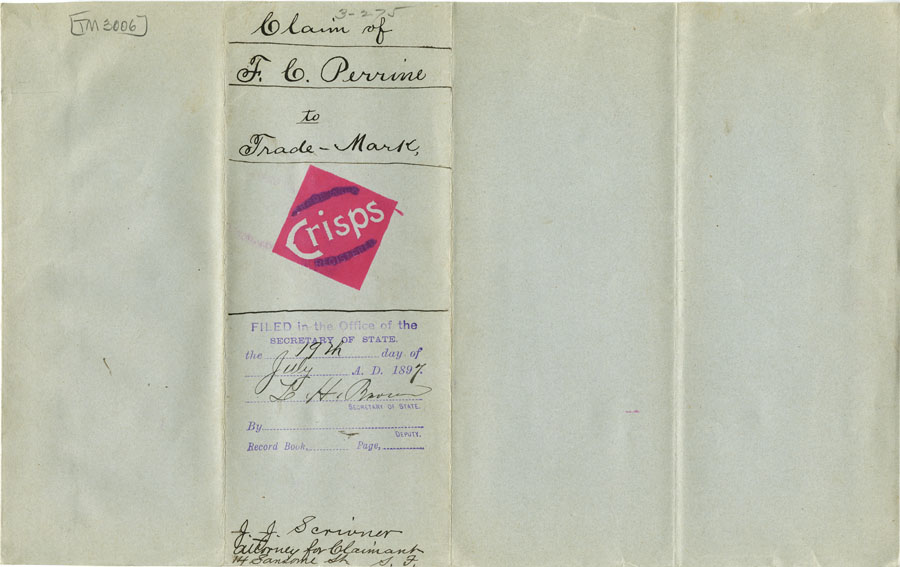 TM3006
3-275
Claim of
F. C. Perrine
to
Trade-Mark,
Crisps
FILED in the Office of the
SECRETARY OF STATE.
the 19th day of
July A. D. 1897.
L. H. Brown
SECRETARY OF STATE.
By
DEPUTY.
Record Book, Page,
J. J. Scrivner
Attorney for Claimant
St S. F.